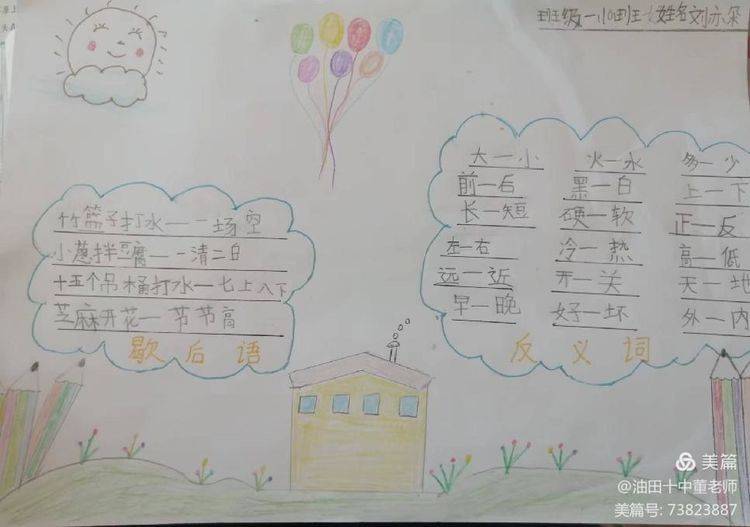 班级一小班 姓名刘亦朵
竹篮子打水一一场空
小葱拌豆腐一一清二白
十五个吊桶打水一七上八下
芝麻开花一节节高
歇后语
大一小 火一水 多一少
前一后 黑一白 上一下
长一短 硬一软 正一反
左一右 冷一热 高一低
远一近 开一关 天一地
早一晚 好一坏 外一内
反义词
美篇
@油田十中董老师
美篇号: 73823887